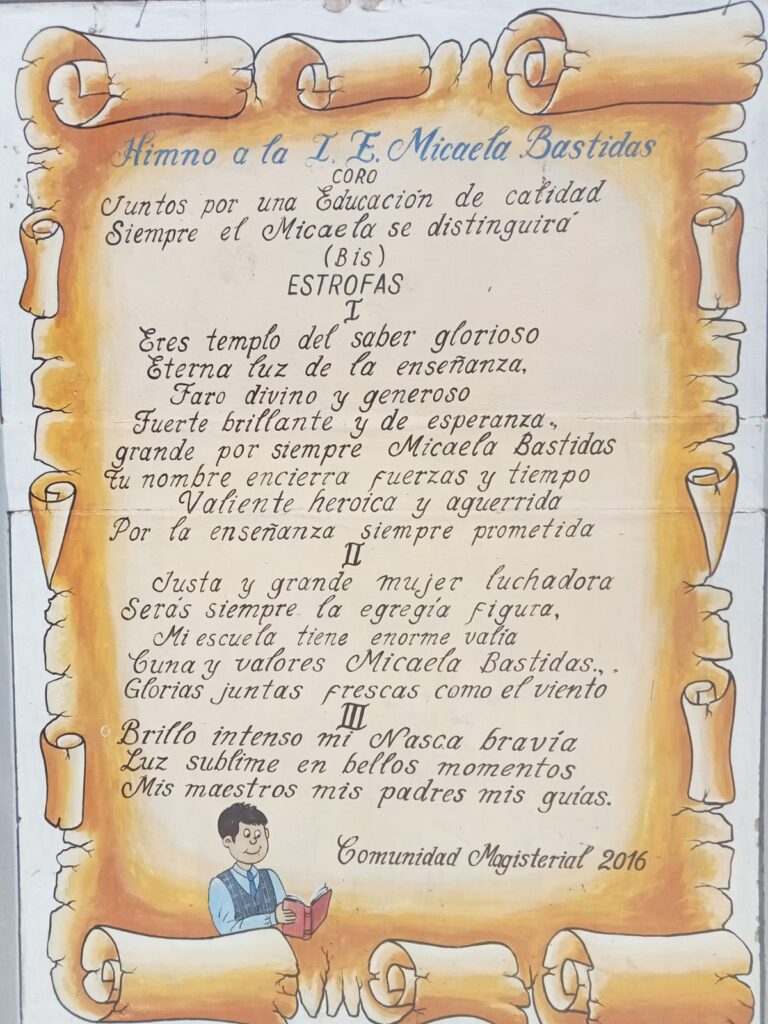 Himno a la I. E. Micaela Bastidas
CORO
Juntos por una Educación de calidad
Siempre el Micaela se distinguirá
(Bis)
ESTROFAS
I
Eres templo del saber glorioso
Eterna luz de la enseñanza,
Faro divino y generoso
Fuerte brillante y de esperanza.,
grande por siempre Micaela Bastidas
tu nombre encierra fuerzas y tiempo
Valiente heroica y aguerrida
Por la enseñanza siempre prometida
II
Justa y grande mujer luchadora
Serás siempre la egregía figura,
Mi escuela tiene enorme valía
Cuna y valores Micaela Bastidas.,.
Glorias juntas frescas como el viento
III
Brillo intenso mi Nasca bravía
Luz sublime en bellos momentos
Mis maestros mis padres mis guías.
Comunidad Magisterial 2016